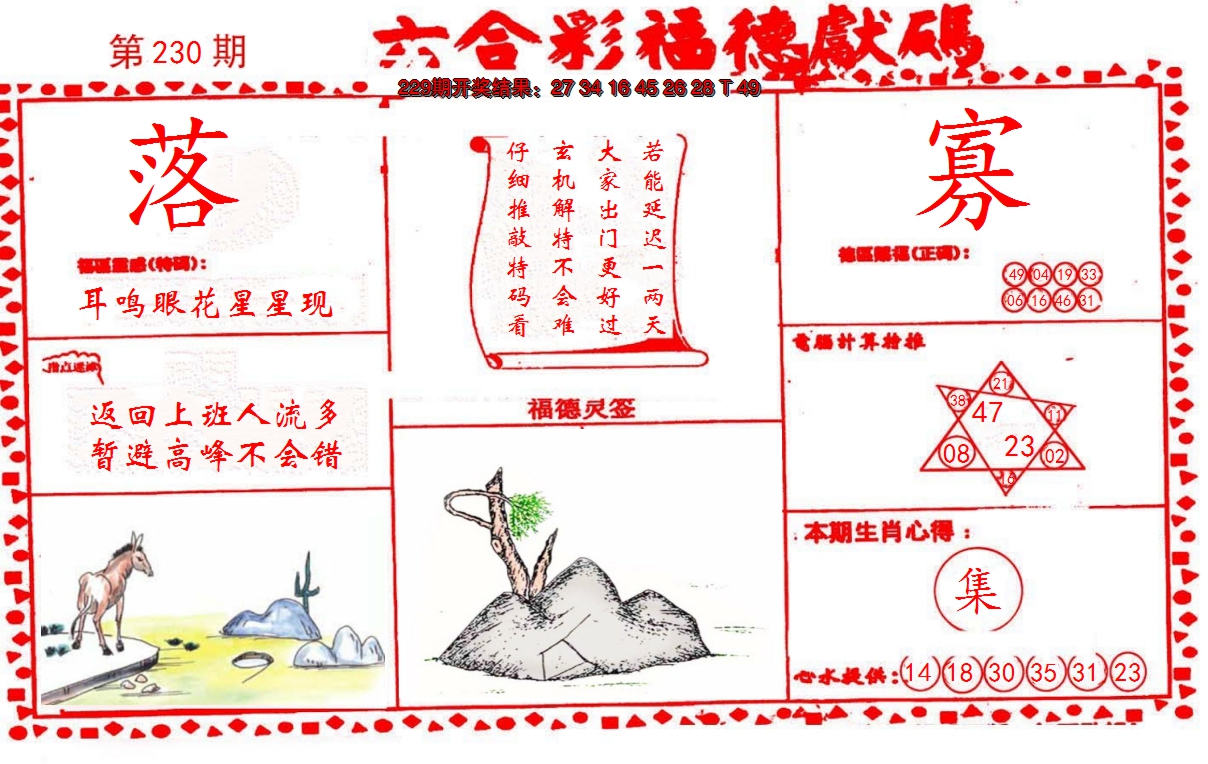 第230期
六合彩福德獻碼
229期开奖结果：27 34 16 45 26 28 T 49
落
福區靈感(特碼)：
耳鸣眼花星星现
指点迷津
返回上班人流多
暂避高峰不会错
若能延迟一两天
大家出门更好过
玄机解特不会难
仔细推敲特码看
福德灵签
寡
德區賜福(正碼)：
49 04 19 33
06 16 46 31
電腦計算摿推
21
38 47 11
08 23 02
16
本期生肖心得：
集
心水提供：14 18 30 35 31 23